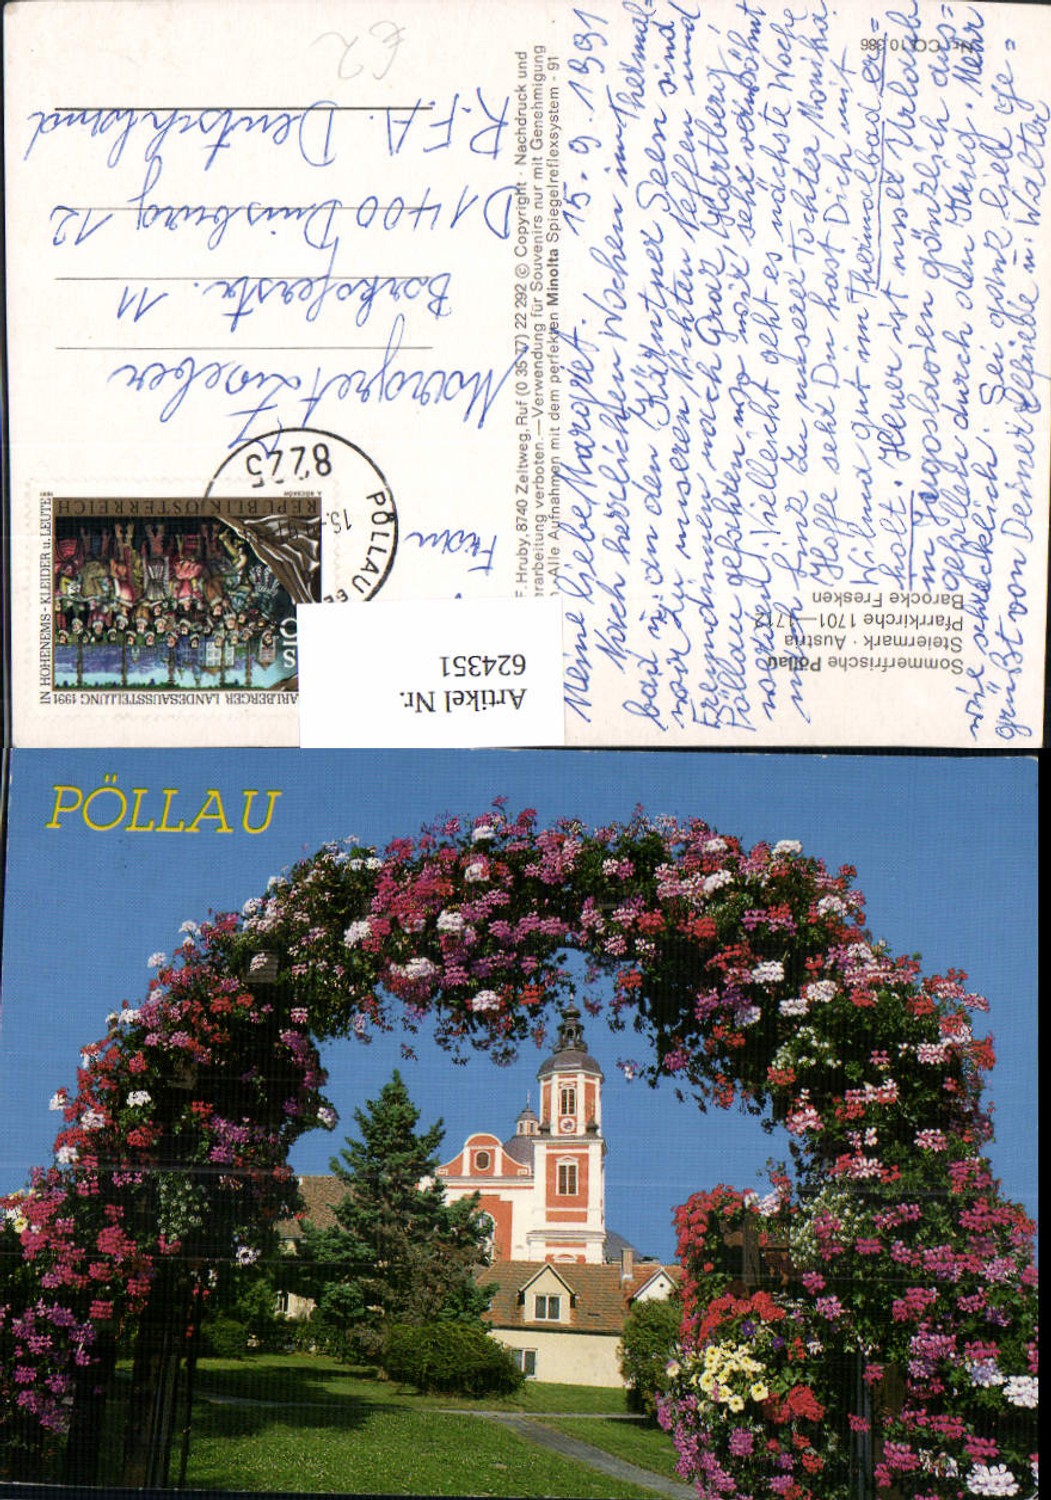 15. 9. 1991
Meine liebe Margret.
Nach herrlichten Wochen im Thermal=
bad u. an den Kärntner Seen sind
wir zu unseren Nichten Neffen und
Freundinnen nach Graz, Hartberg,
Pöllau gefahren wo wir sehr verwöhnt
werden. Vielleicht geht es nächste Woche
noch Linz zu unserer Tochter Monika.
Hoffe sehr Du hast Dich mit
Wilma gut im Thermalbad er=
holt. Heuer ist unser Urlaub
in Jugoslavien gänzlich aus=
gefallen durch den Krieg. Mehr
wie schrecklich! Sei ganz lieb ge=
grüßt von Deiner Helliebe u. Walter
Frau
Margret Zweber
Barkhofstr. 11
D 1400 Duisburg 12
R.F.A. Deutschland
€2
Sommerfrische Pöllau
Steiermark · Austria
Pfarrkirche 1701—1712
Barocke Fresken
Nr. CO 10 386
F. Hruby, 8740 Zeltweg, Ruf (0 35 77) 22 292 © Copyright · Nachdruck und
erarbeitung verboten. — Verwendung für Souvenirs nur mit Genehmigung
Alle Aufnahmen mit dem perfekten Minolta Spiegelreflexsystem - 91
REPUBLIK ÖSTERREICH
ARLBERGER LANDESAUSSTELLUNG 1991
IN HOHENEMS - KLEIDER u. LEUTE
8225
PÖLLAU
Artikel Nr.
624351
PÖLLAU